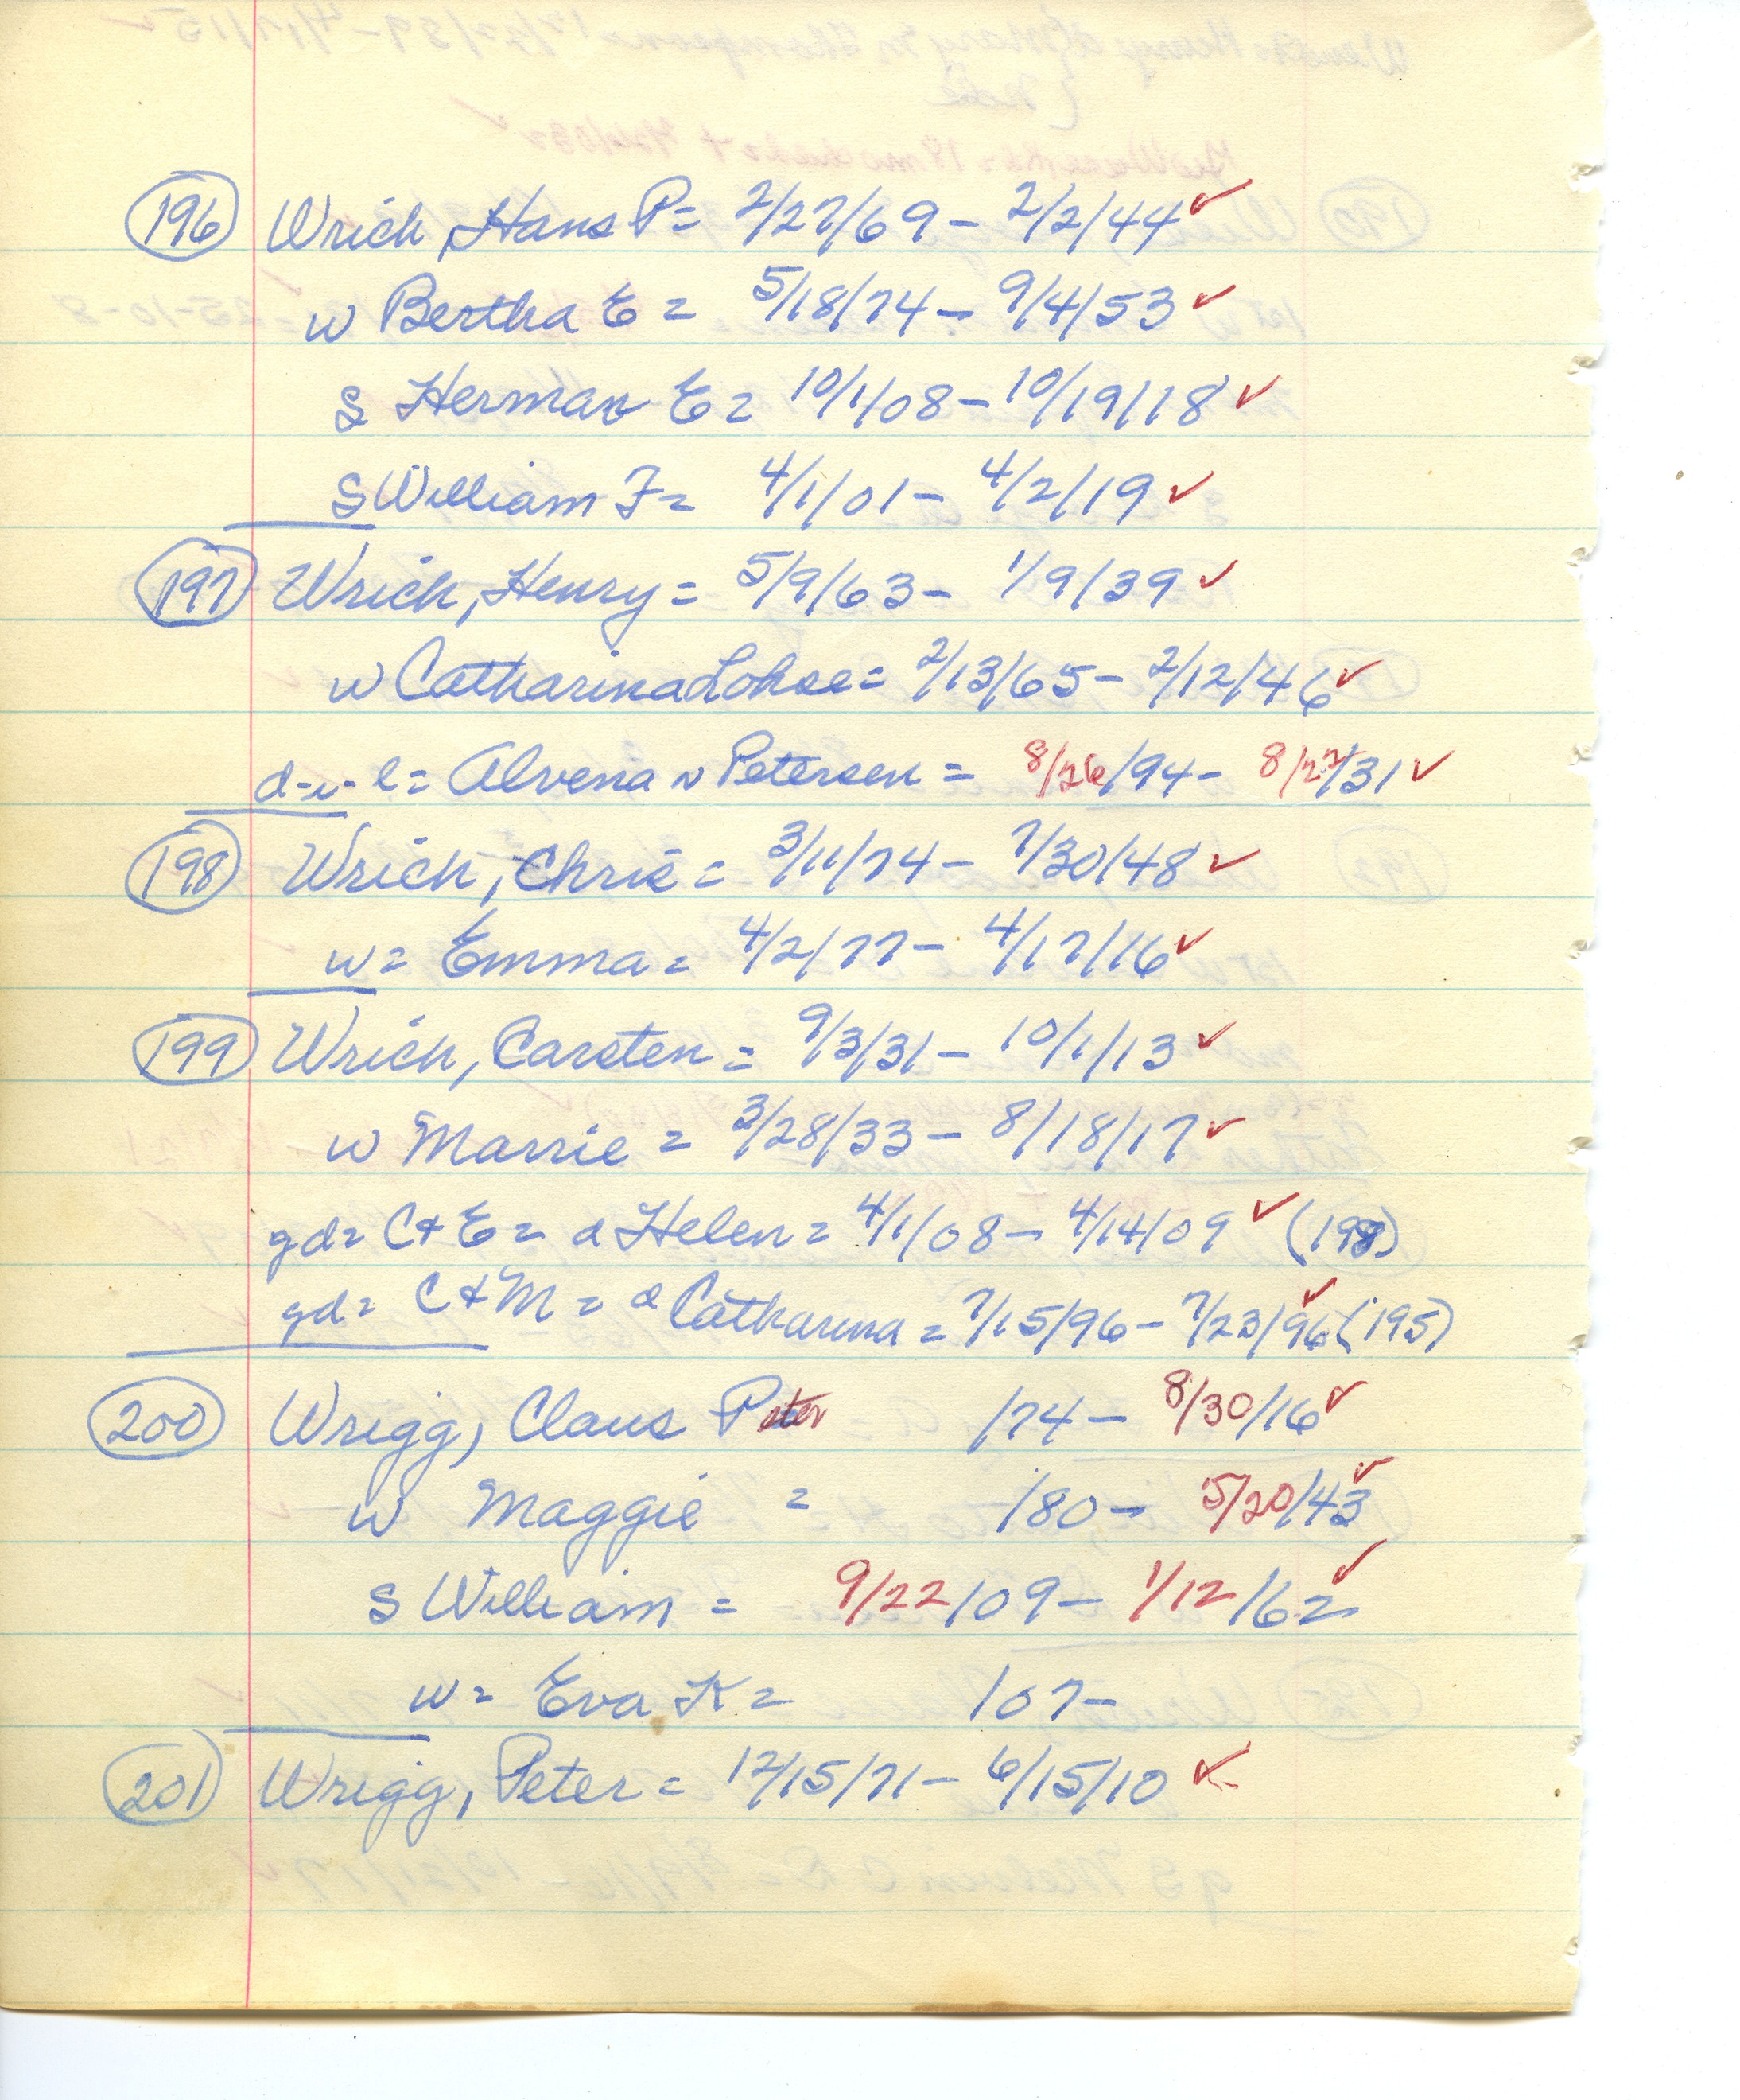 196 Wrich, Hans P= 2/27/69 - 2/2/44 ✓
w Bertha E = 5/18/74 - 9/4/53 ✓
s Herman E = 10/1/08 - 10/19/18 ✓
s William F= 4/1/01 - 4/2/19 ✓
197 Wrich, Henry = 5/9/63 - 1/9/39 ✓
w Catharina Lohse = 2/13/65 - 2/12/46 ✓
d-i-l = Alvena n Petersen = 8/26/94 - 8/27/31 ✓
198 Wrich, Chris = 3/11/74 - 7/30/48 ✓
w = Emma = 4/2/77 - 4/17/16 ✓
199 Wrich, Carsten = 9/3/31 - 10/1/13 ✓
w Marrie = 3/28/33 - 8/18/17 ✓
gd= C+E = d Helen = 4/1/08 - 4/14/09 ✓ (198)
gd= C+M = d Catharina = 7/15/96 - 7/23/96 ✓ (195)
200 Wrigg, Claus Peter /74 - 8/30/16 ✓
w Maggie = /80 - 5/20/43 ✓
s William = 9/22/09 - 1/12/62 ✓
w = Eva K = /07 -
201 Wrigg, Peter = 12/15/71 - 6/15/10 ✓